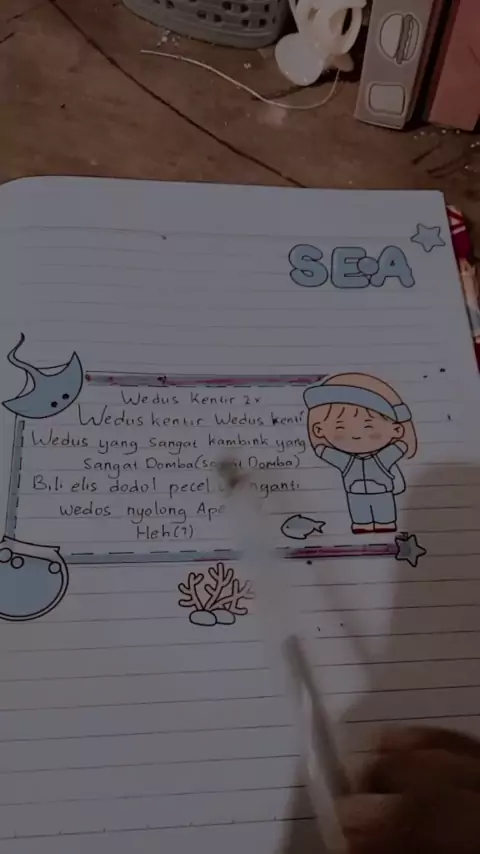 SEA
Wedus Kentir 2x
Wedus kentir Wedus kenti
Wedus yang sangat kambink yang
Sangat Domba (sangat Domba)
Bili elis dodol pecel
wedos nyolong Ape
Heh (?)